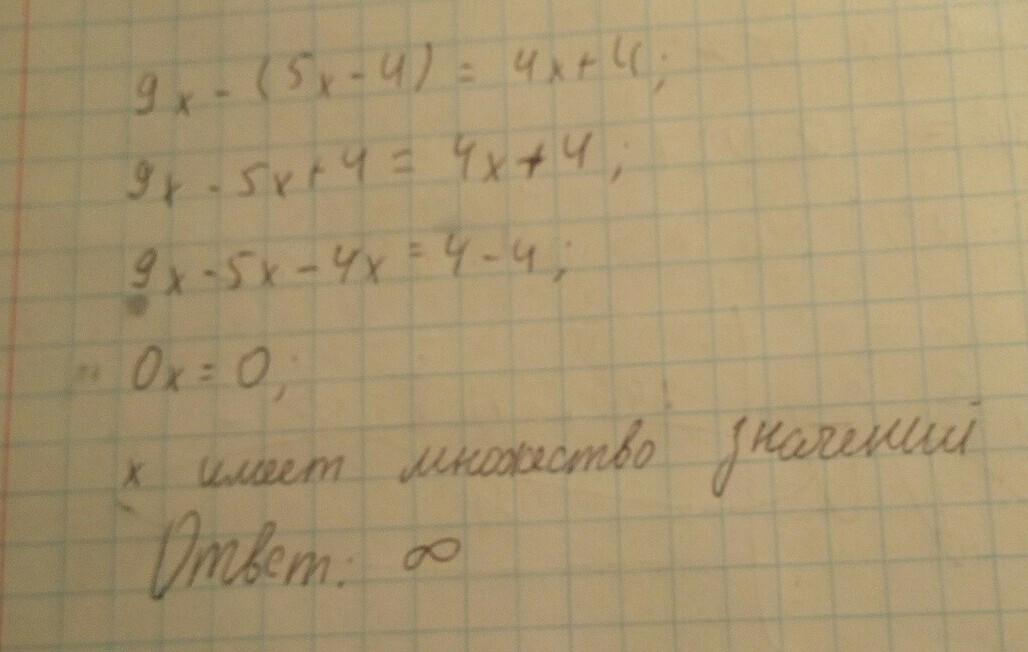 9x - (5x - 4) = 4x + 4;
9x - 5x + 4 = 4x + 4;
9x - 5x - 4x = 4 - 4;
0x = 0;
x имеет множество значений
Ответ: ∞